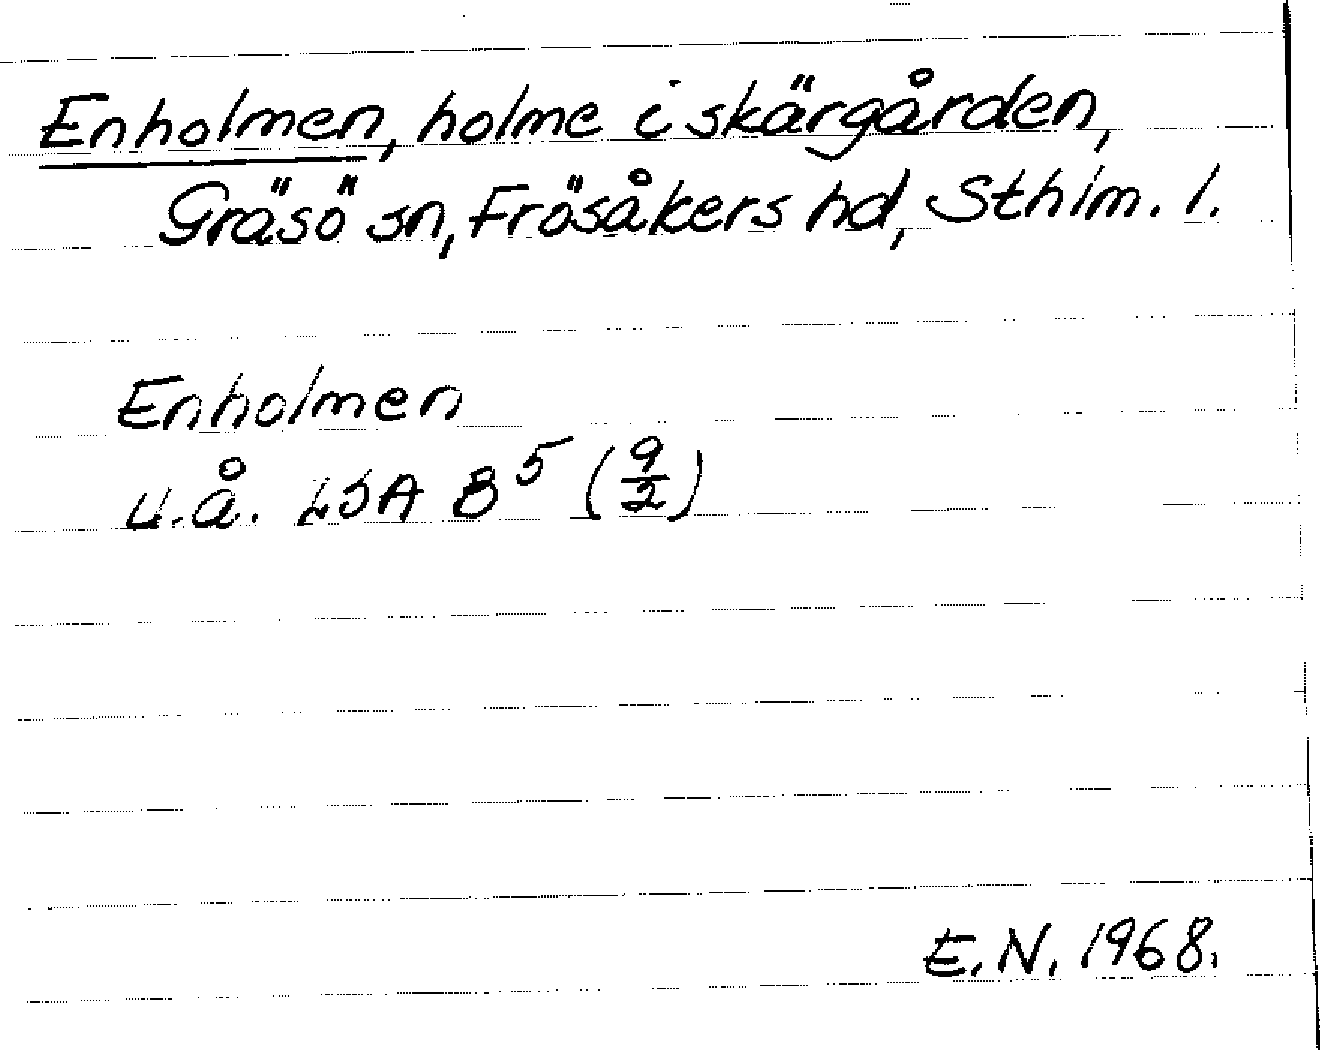 Enholmen, holme i skärgården,
Gräsö sn, Frösåkers hd, Sthlm. l.
Enholmen
u.å. LSA B⁵ (9/2)
E.N. 1968.